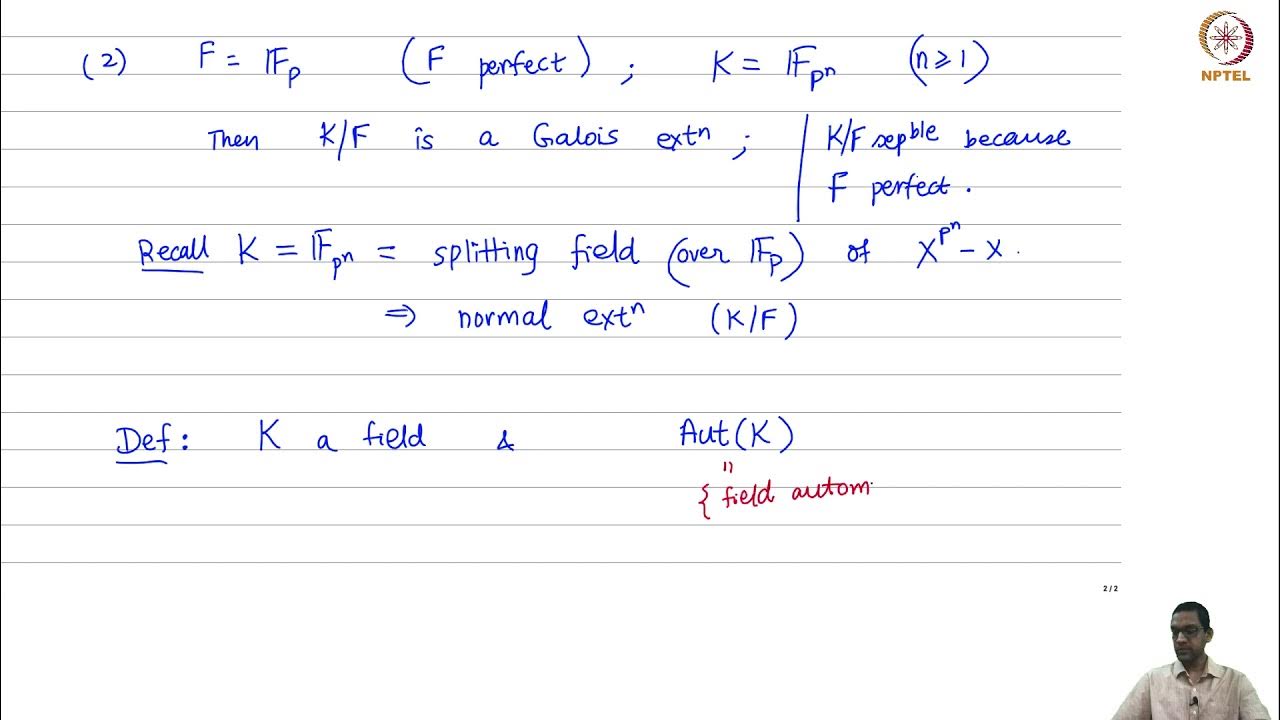 (2) F = 𝔽ₚ (F perfect) ; K = 𝔽_{pⁿ} (n ≥ 1)
Then K/F is a Galois extⁿ ; K/F sepᵇˡᵉ because
F perfect .
Recall K = 𝔽_{pⁿ} = splitting field (over 𝔽ₚ) of X^{pⁿ} - X .
⇒ normal extⁿ (K/F)
Def : K a field & Aut(K)
=
{ field autom
2 / 2
NPTEL